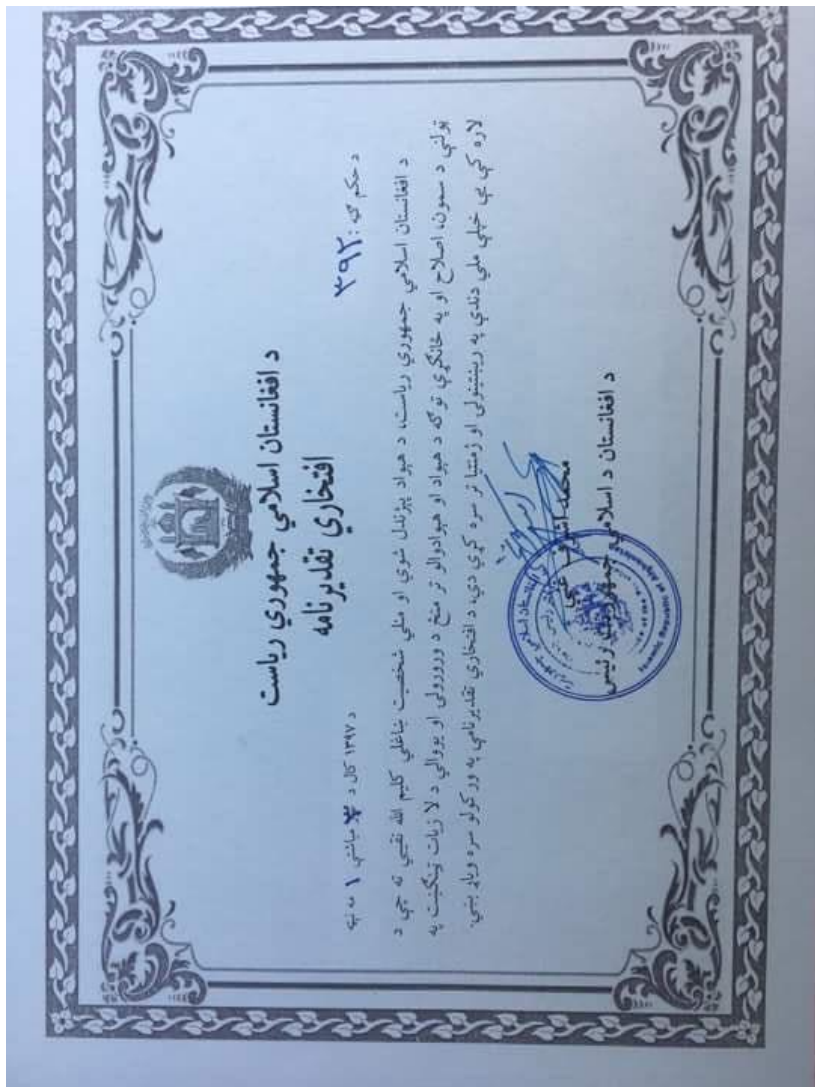 د افغانستان اسلامي جمهوري ریاست
افتخاري تقدیرنامه
د حکم ګڼه: ۳۹۲
د ۱۳۹۷ کال د میاشتې ۱ مه نېټه
د افغانستان اسلامي جمهوري ریاست، د هېواد پېژندل شوي او منلي شخصیت ښاغلي کلیم الله نقیبي ته چې د
ټولنې د سمون، اصلاح او په ځانګړې توګه د هېواد او هېوادوالو تر منځ د ورورولۍ او یووالي د لا زیات ټینګښت په
لاره کې یې خپلې ملي دندې په رښتینولۍ او ژمنتیا تر سره کړې دي، د افتخاري تقدیرنامې په ورکولو سره ویاړ بښي.
محمد اشرف غني
د افغانستان د اسلامي جمهوریت رئیس